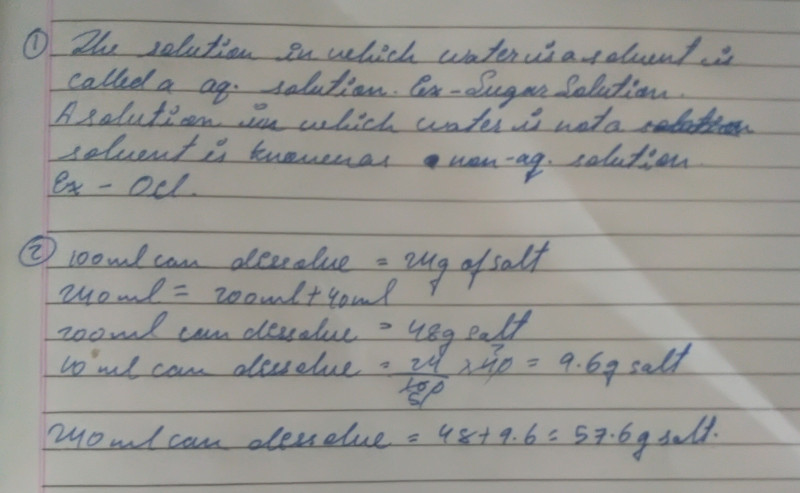 ① The solution in which water is a solvent is
called a aq. solution. Ex-Sugar Solution.
A solution in which water is not a solution
solvent is known as non-aq. solution.
Ex - OCl.
② 100ml can dissolve = 24g of salt
240ml = 200ml + 40ml
200ml can dissolve = 48g salt
40 ml can dissolve = 24/100 × 40 = 9.6g salt
240ml can dissolve = 48+9.6 = 57.6g salt.